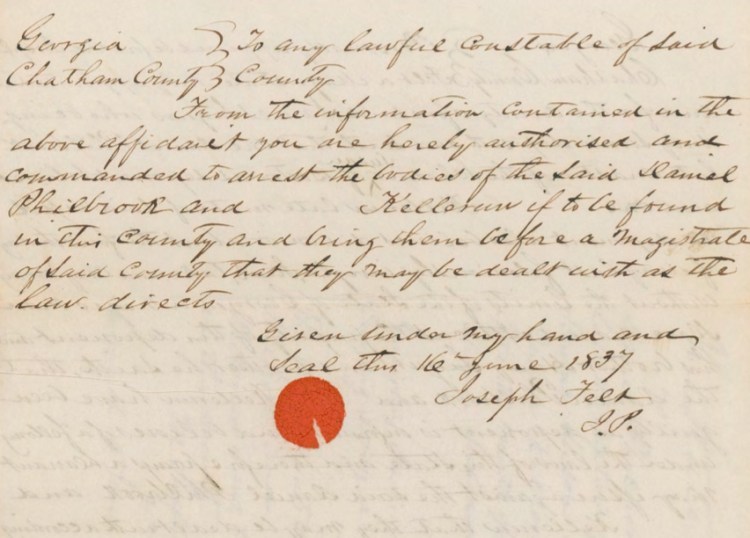 Georgia } To any lawful constable of said
Chatham County } County
From the information contained in the
above affidavit you are hereby authorised and
commanded to arrest the bodies of the said Daniel
Philbrook and Kelleran if to be found
in this County and bring them before a Magistrate
of said County that they may be dealt with as the
law directs
Given under my hand and
Seal this 16th June 1837
Joseph Felt
J.P.